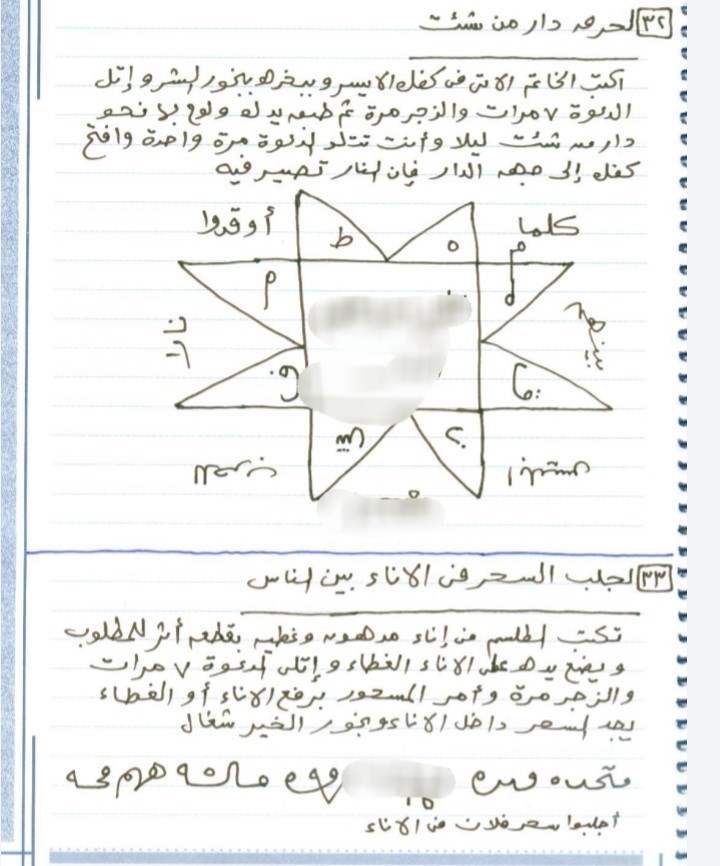 ٣٢ لحرق دار من شئت
اكتب الخاتم الاتى فى كفك الايسر وبخره ببخور الشر وإتل
الدعوة ٧ مرات والزجر مرة ثم طبق يدك ولوح بها نحو
دار من شئت ليلا وأنت تتلو الدعوة مرة واحدة وافتح
كفك إلى جهه الدار فإن النار تصير فيه
كلما أوقدوا
ط ه
م
نارا
ف
٣٣ لجلب السحر فى الاناء بين الناس
تكتب الطلسم فى إناء مدهون وغطيه بقطعه أثر للمطلوب
ويضع يده على الاناء الغطاء وإتلى الدعوة ٧ مرات
والزجر مرة وأمر المسحور برفع الاناء أو الغطاء
يجد السحر داخل الاناء وبخور الخير شغال
أجلبوا سحر فلان فى الاناء